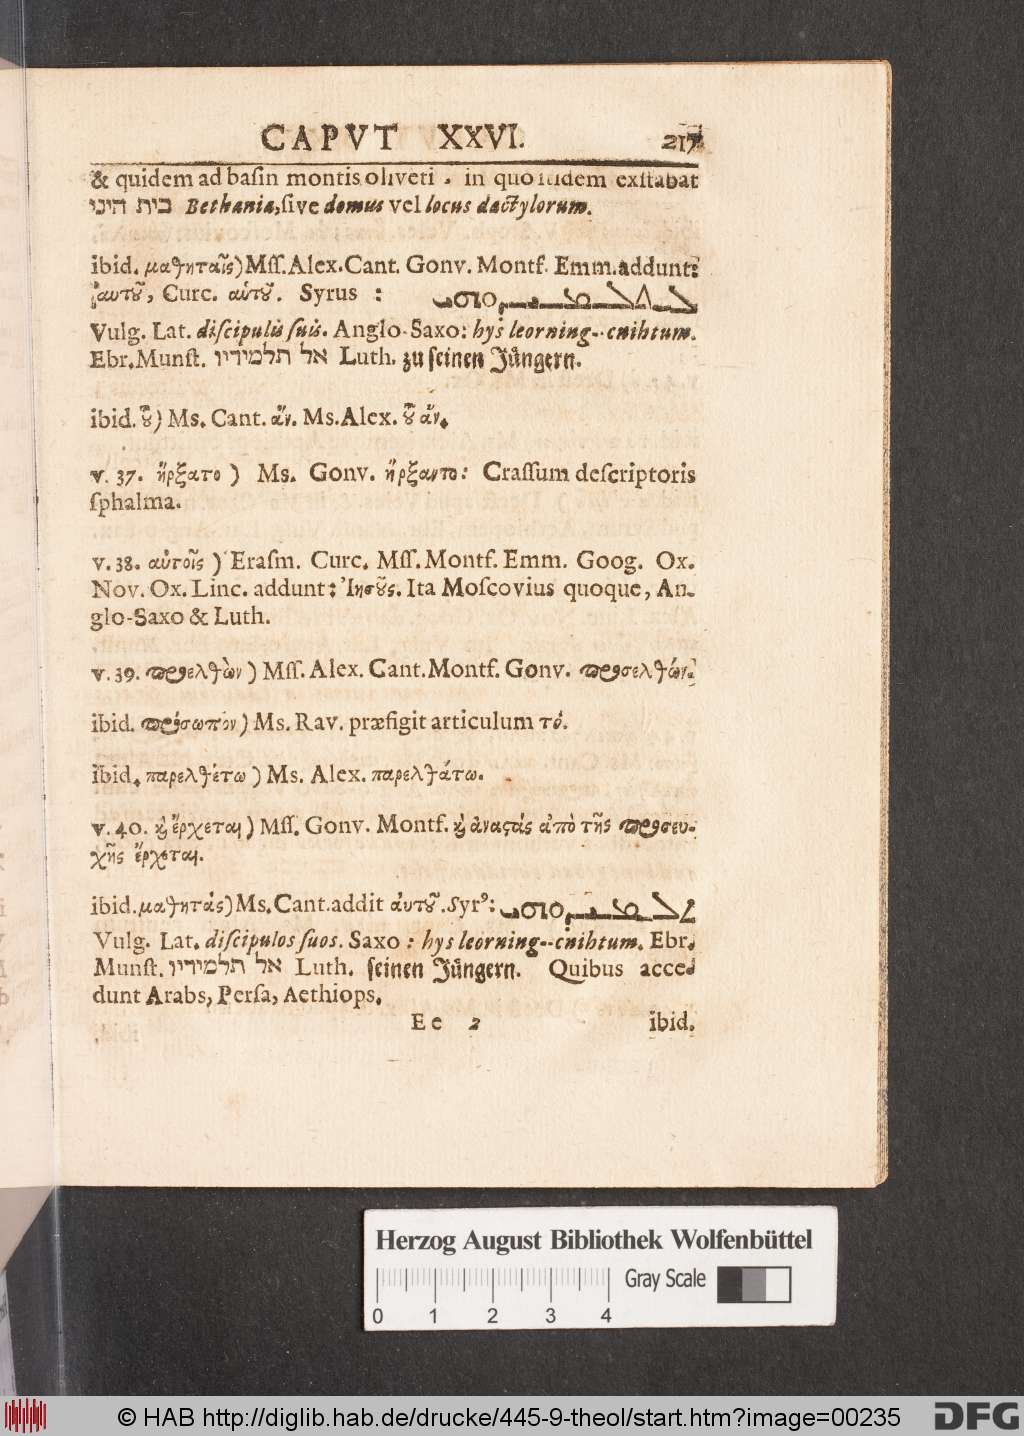 CAPVT XXVI. 217
& quidem ad baſin montis oliveti, in quo itidem exſtabat
בית היני Bethania, ſive domus vel locus dactylorum.
ibid. μαθηταῖς) Mſſ. Alex. Cant. Gonv. Montf. Emm. addunt:
αυτȣ͂, Curc. αὑτȣ͂. Syrus :
Vulg. Lat. diſcipulis ſuis. Anglo-Saxo: hys leorning-cnihtum.
Ebr. Munſt. אל תלמידיו Luth. zu ſeinen Jüngern.
ibid. ȣ̃) Ms. Cant. ἄν. Ms. Alex. ȣ̃ ἄν.
v. 37. ἤρξατο ) Ms. Gonv. ἤρξαντο: Craſſum deſcriptoris
ſphalma.
v. 38. αὐτοῖς ) Eraſm. Curc. Mſſ. Montf. Emm. Goog. Ox.
Nov. Ox. Linc. addunt: Ἰησȣ͂ς. Ita Moſcovius quoque, An-
glo-Saxo & Luth.
v. 39. προελθὼν ) Mſſ. Alex. Cant. Montf. Gonv. προσελθών.
ibid. πρόσωπον) Ms. Rav. præfigit articulum τό.
ibid. παρελθέτω ) Ms. Alex. παρελθάτω.
v. 40. ϗ ἔρχεται) Mſſ. Gonv. Montf. ϗ ἀναςάς ἀπὸ τῆς προσευ-
χῆς ἔρχεται.
ibid. μαθητάς) Ms. Cant. addit ἀυτȣ͂. Syrꝰ:
Vulg. Lat. diſcipulos ſuos. Saxo : hys leorning-cnihtum. Ebr.
Munſt. אל תלמידיו Luth. ſeinen Jüngern. Quibus acce-
dunt Arabs, Perſa, Aethiops.
Ee 2 ibid.
Herzog August Bibliothek Wolfenbüttel
Gray Scale
0 1 2 3 4
© HAB http://diglib.hab.de/drucke/445-9-theol/start.htm?image=00235 DFG